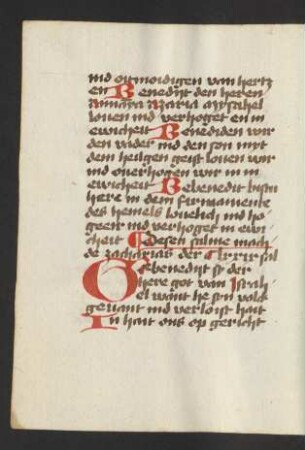 ind oitmoidigen van hertz
en Benedijt den heren
Annaya Azaria mysahel
louen ind verhoget en in
ewicheit Benediden wir
den vader ind den son myt
dem heilgen geist louen wir
ind ouerhogen wir in in
ewicheit Gebenedit bistu
here in dem firmamente
des hemels louelich ind ho
geert ind verhoget in ewi
cheit Desen salme mach
de zacharias der
Gebenedijt si der
here got van israh
el want he syn volck
ind verloist hait
In hait ons op gericht